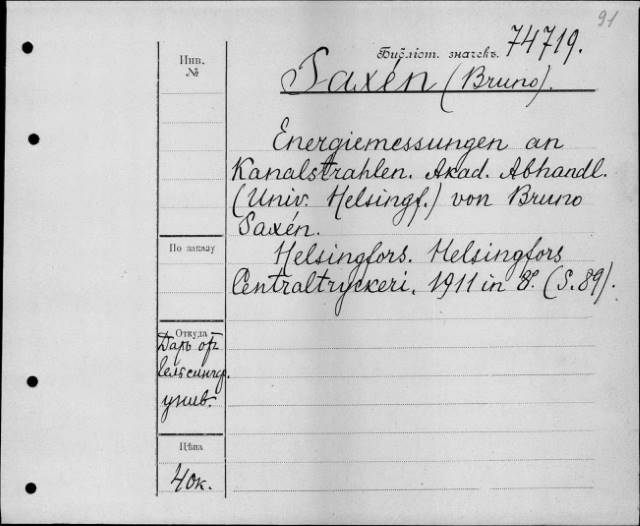 91
Библіот. значекъ. 74719.
Инв.
№
Saxén (Bruno).
Energiemessungen an
Kanalstrahlen. Akad. Abhandl.
(Univ. Helsingf.) von Bruno
Saxén.
По заказу
Helsingfors. Helsingfors
Centraltryckeri, 1911 in 8°. (S. 89).
Откуда
Даръ от
Гельсингф.
унив.
Цѣна
40к.